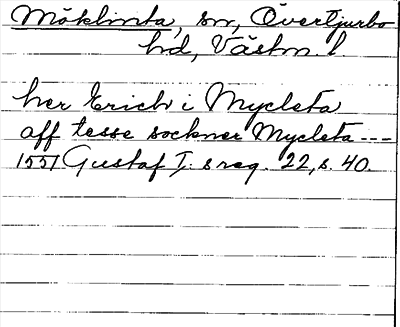 Möklinta, sn, Övertjurbo
hd, Västm. l.
her Erich i Mycleta
aff tesse sockner Mycleta ---
1551 Gustaf I:s reg. 22, s. 40.